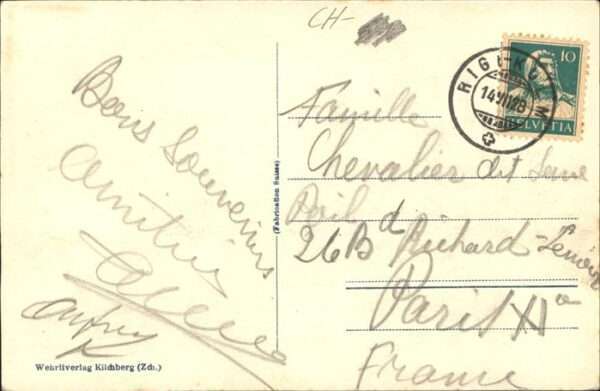 CH-
Bons Souvenirs
Amitiés
10
HELVETIA
RIGI-KULM
14 VII 28
Famille
Chevalier dit
26 Bd Richard-Lenoir
Paris XIe
France
(Fabrication Suisse)
Wehrliverlag Kilchberg (Zch.)